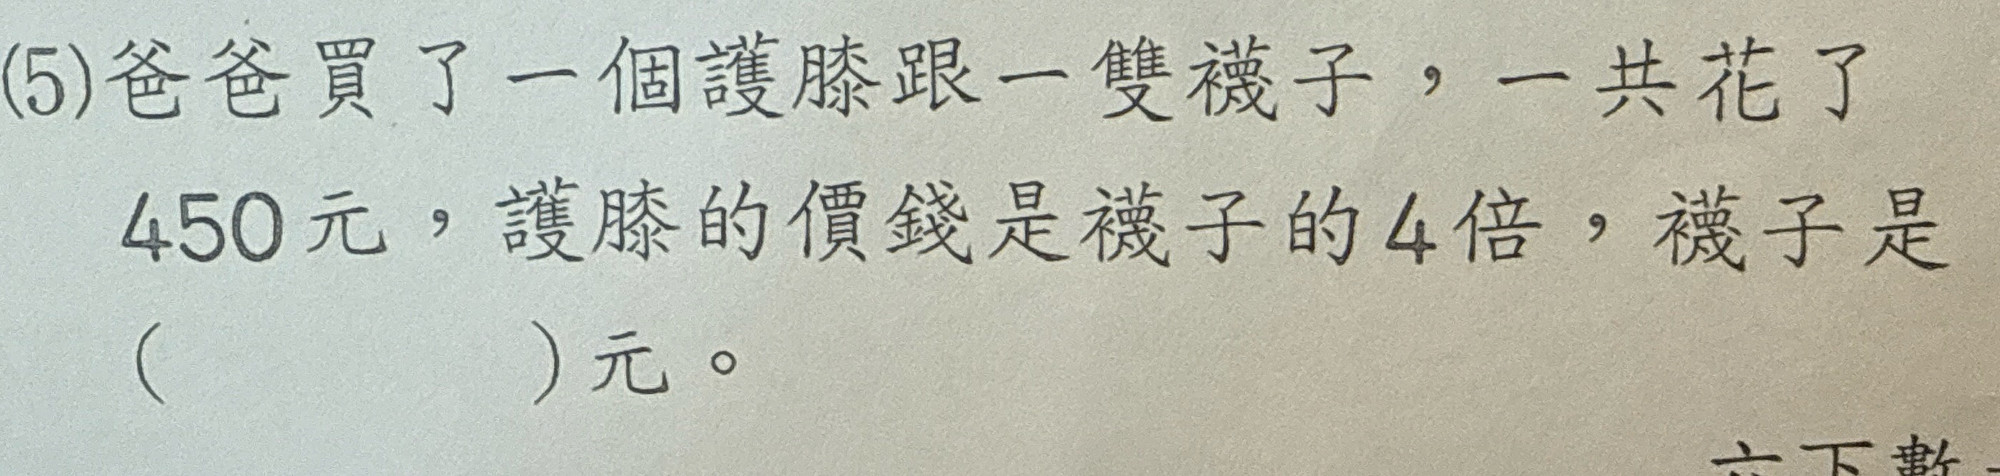 (5)爸爸買了一個護膝跟一雙襪子，一共花了
450元，護膝的價錢是襪子的4倍，襪子是
(　　　　)元。
六下數